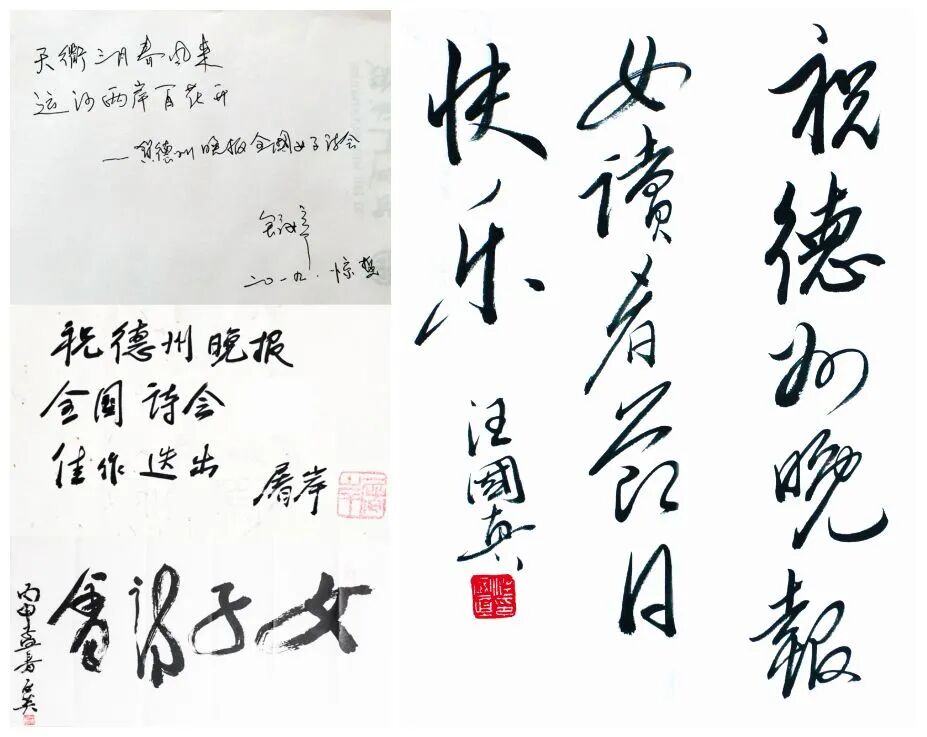 天衢三月春风来
运河两岸百花开
——贺德州晚报全国女子诗会
二〇一九.惊蛰
祝德州晚报
全国诗会
佳作迭出
屠岸
女子诗會
丙申孟春石英
祝德州晚報
女讀者节日
快乐
汪國真